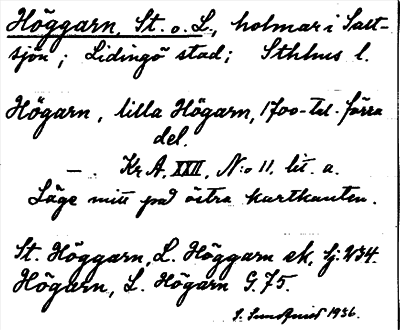 Höggarn, St. o. L., holmar i Salt-
sjön ; Lidingö stad ; Sthlms l.
Högarn, lilla Högarn, 1700-tal. förra
del.
— . Kr. A, XXII, N:o 11, lit. a.
Läge mitt på östra kartkanten.
St. Höggarn, L. Höggarn ek, Sj.
Högarn, L. Högarn G. 75.
1936.